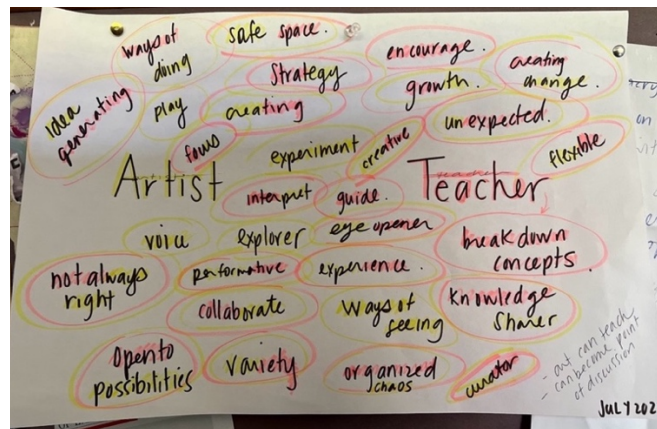 ways of
doing
safe space.
encourage.
creating
change.
Strategy
growth.
idea
generating
play
creating
unexpected.
focus
experiment
creative
flexible
Artist
Teacher
interpret
guide.
voice
explorer
eye opener
break down
concepts.
not always
right
performative
experience.
collaborate
ways of
seeing
knowledge
sharer
open to
possibilities
variety
organized
chaos
curator
- art can teach
- can become point
of discussion
JULY 202